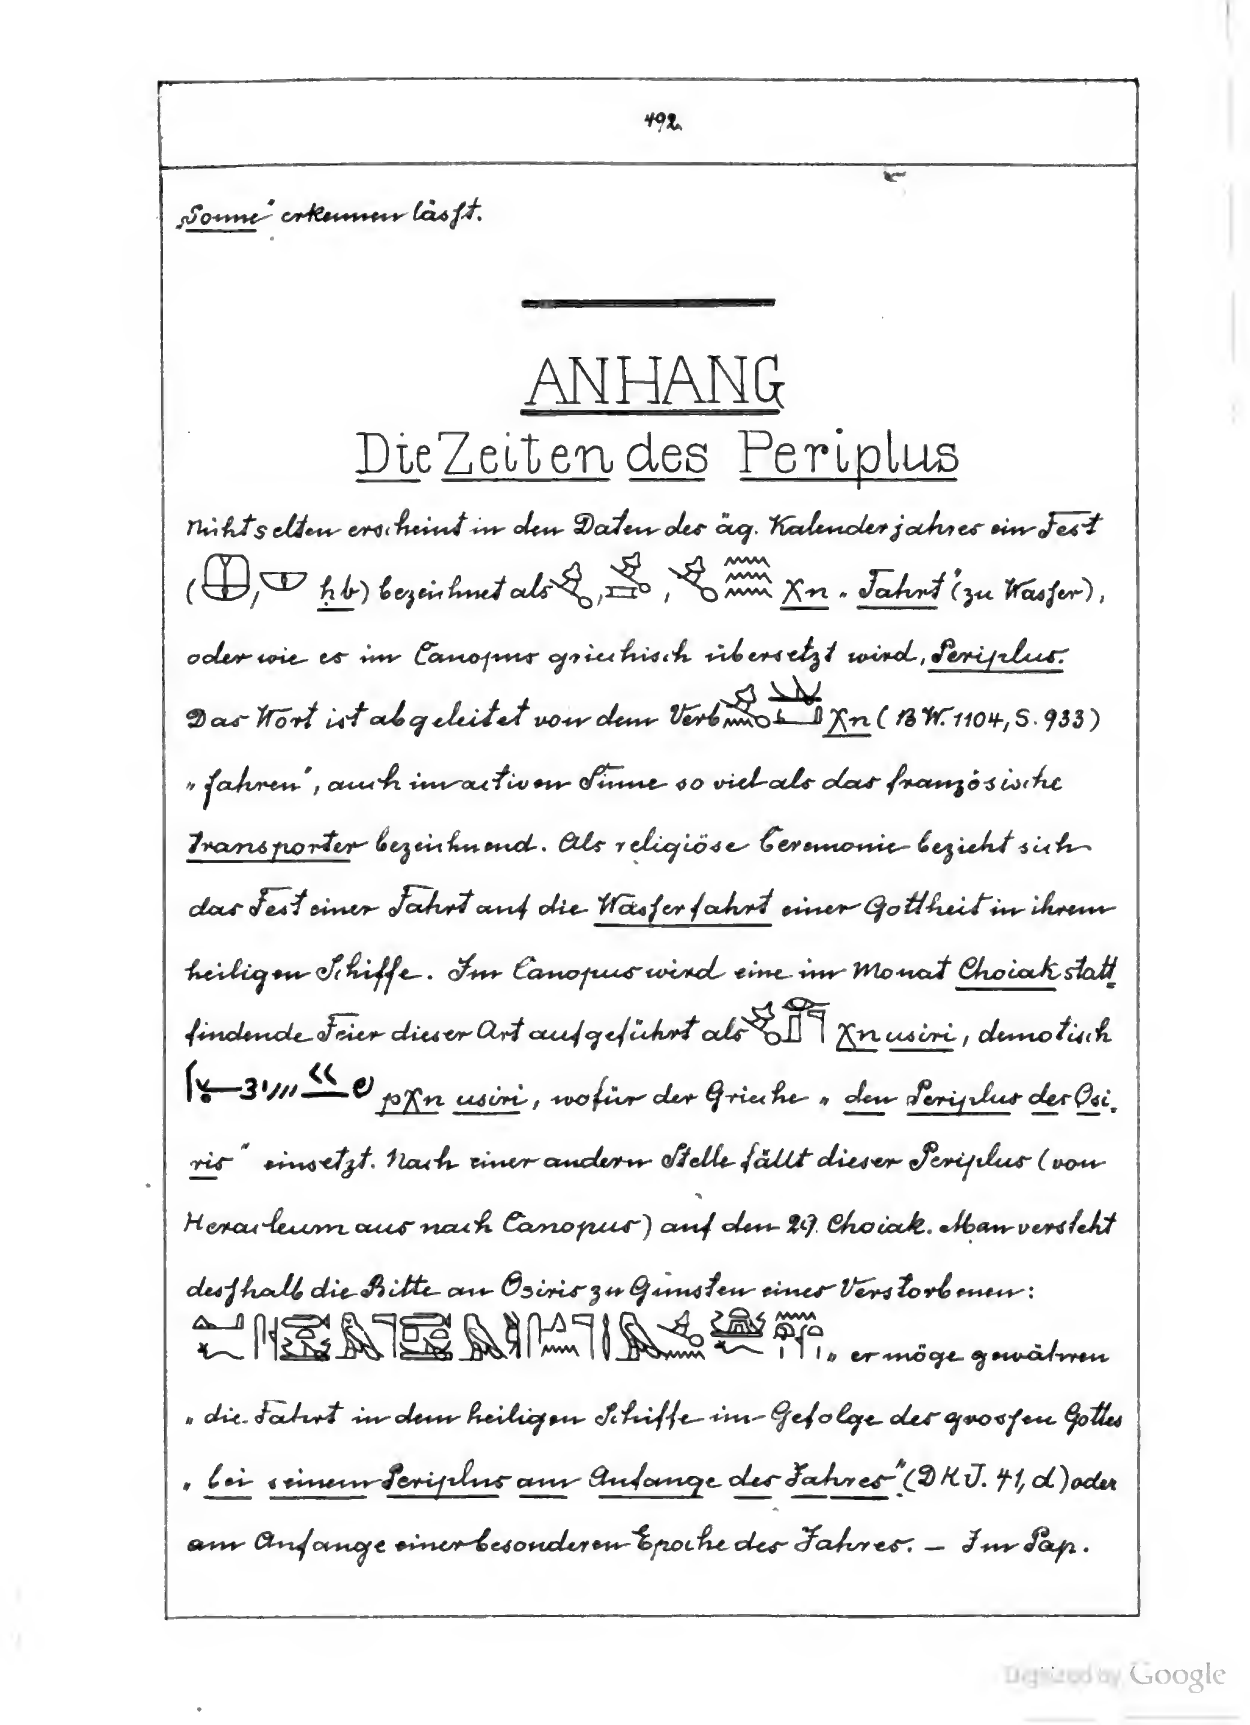 492.
„Sonne" erkennen läsft.
ANHANG
Die Zeiten des Periplus
Nicht selten erscheint in den Daten des äg. Kalenderjahres ein Fest
( , ḥb) bezeichnet als , , χn „Fahrt" (zu Wasfer),
oder wie es im Canopus griechisch übersetzt wird, Periplus.
Das Wort ist abgeleitet von dem Verb χn (BW. 1104, S. 933)
„fahren", auch im activen Sinne so viel als das französische
transporter bezeichnend. Als religiöse Ceremonie bezieht sich
das Fest einer Fahrt auf die Wasferfahrt einer Gottheit in ihrem
heiligen Schiffe. Im Canopus wird eine im Monat Choiak statt
findende Feier dieser Art aufgeführt als χn usiri, demotisch
pχn usiri, wofür der Grieche „den Periplus des Osi-
ris" einsetzt. Nach einer andern Stelle fällt dieser Periplus (von
Heracleum aus nach Canopus) auf den 29. Choiak. Man versteht
desfhalb die Bitte an Osiris zu Gunsten eines Verstorbenen:
„er möge gewähren
„die Fahrt in dem heiligen Schiffe im Gefolge des grosfen Gottes
„bei seinem Periplus am Anfange des Jahres" (DKJ. 41, d) oder
am Anfange einer besonderen Epoche des Jahres. — Im Pap.
Digitized by Google